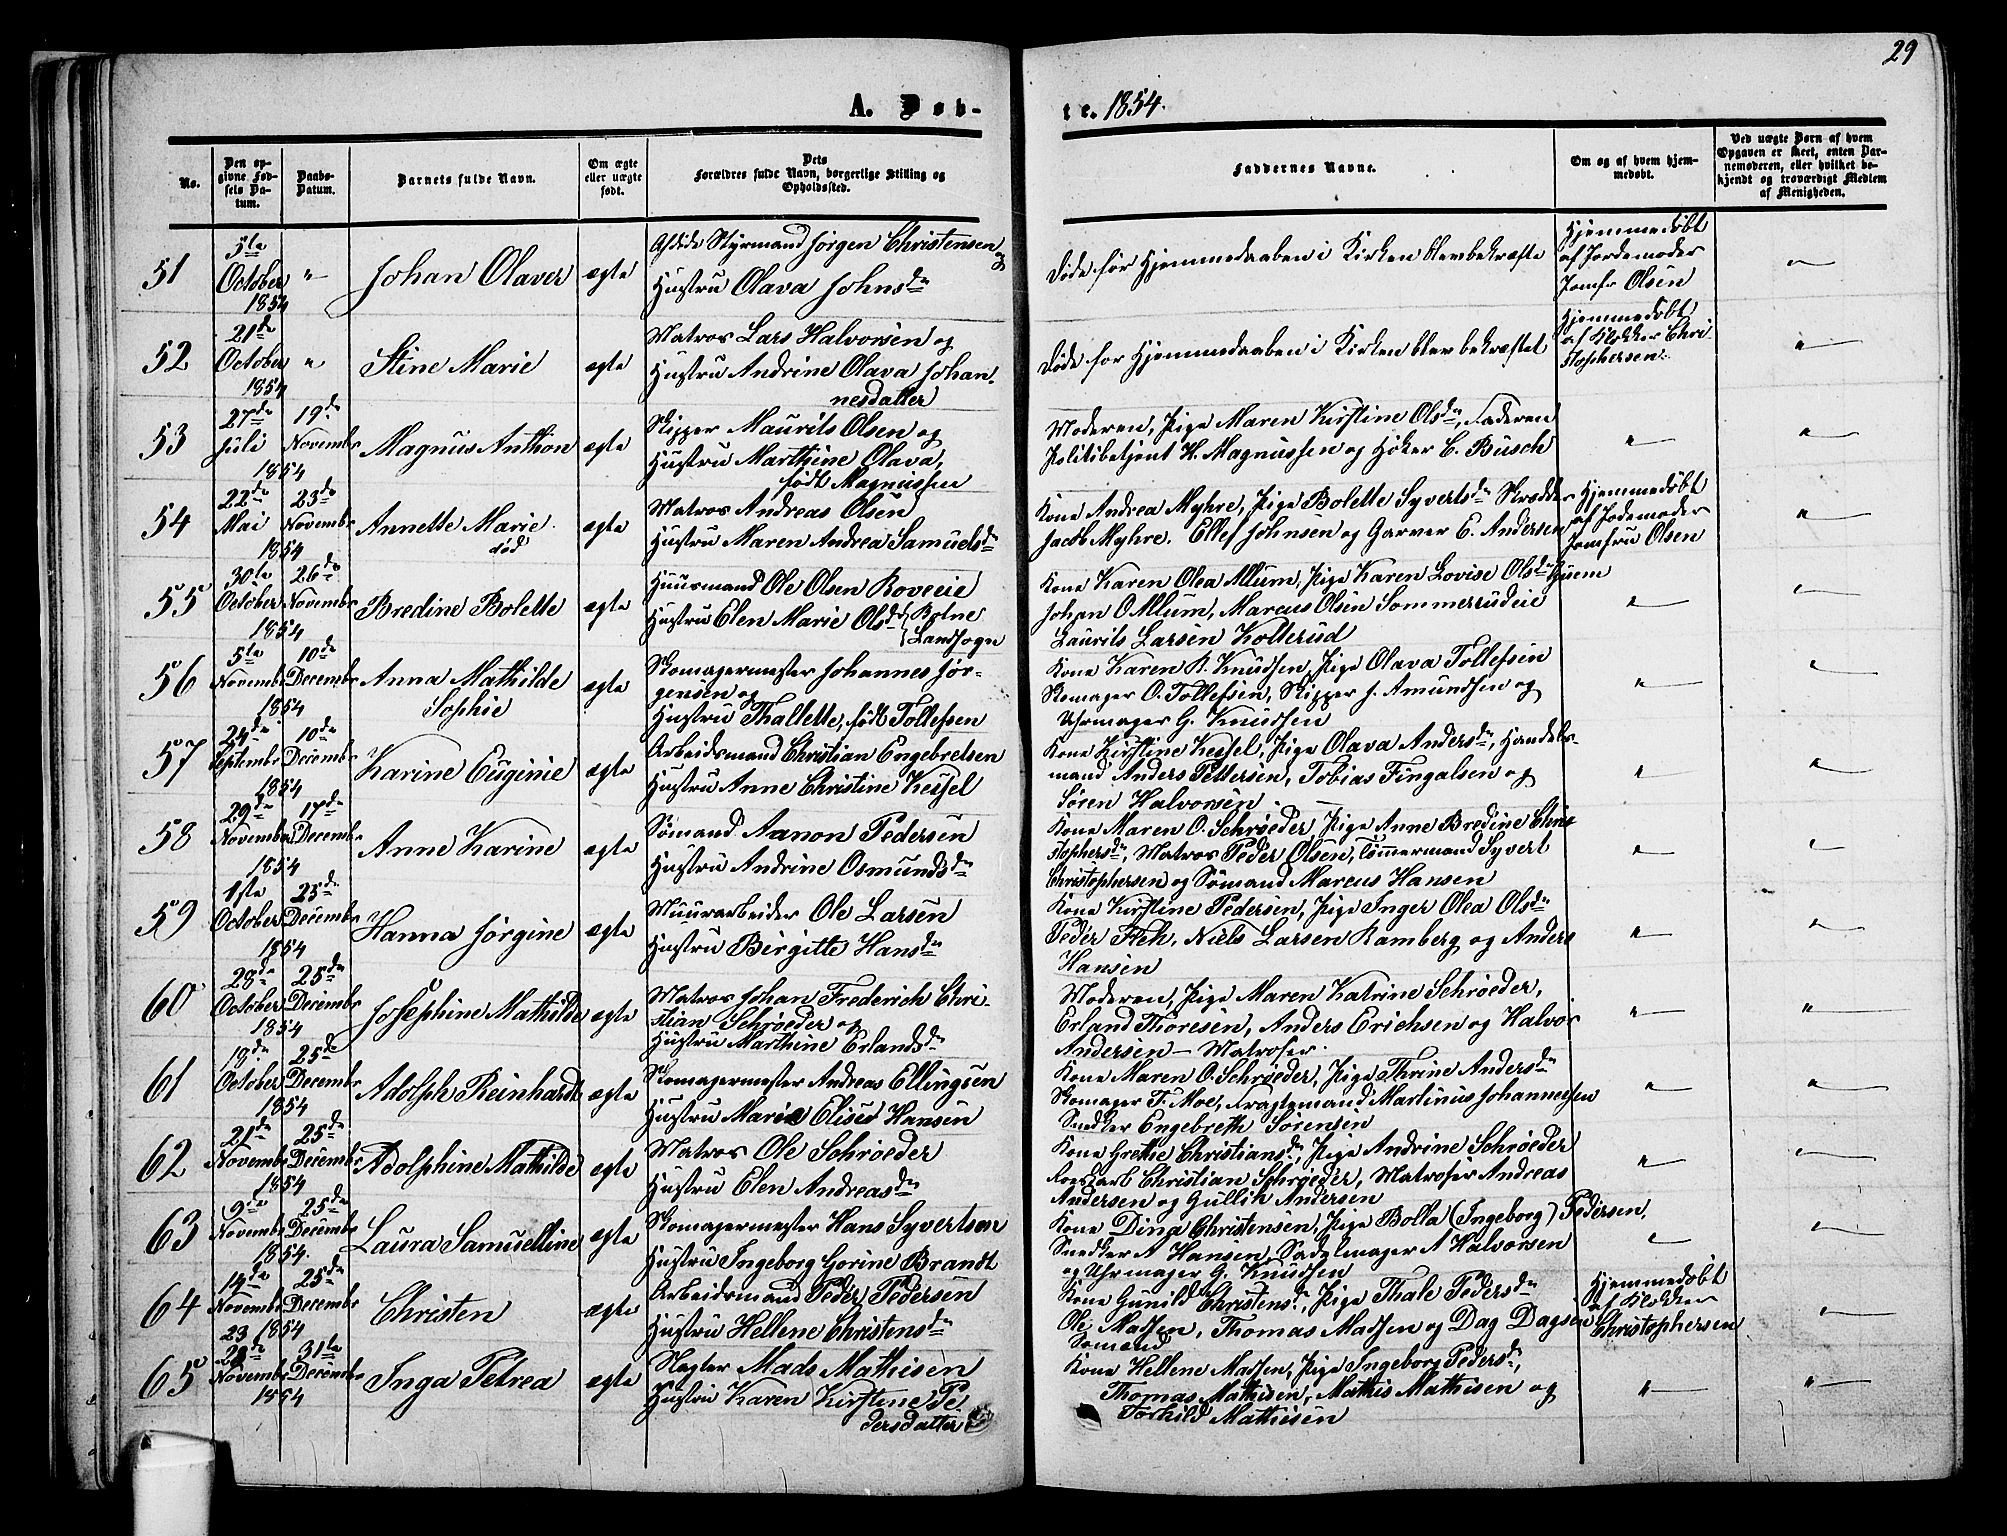 29
A. Døb-
te. 1854.
No.
Den op-
givne Fød-
sels Da-
tum.
Daabs-
Datum.
Barnets fulde Navn.
Om ægte
eller uægte
født.
Dets
Forældres fulde Navn, borgerlige Stilling og
Opholdssted.
Faddernes Navne.
Om og af hvem hjem-
medøbt.
Ved uægte Børn af hvem
Opgaven er skeet, enten Bar-
nemoderen, eller hvilket be-
kjendt og troværdigt Medlem
af Menigheden.
51
5te
October
1854
"
Johan Olaver
ægte
Afdøde Styrmand Jørgen Christensen
og
Hustru Olava Johnsdr
Døde før Hjemmedaaben i Kirken blev bekræfte
Hjemmedøbt
af Jordemoder
Jomfr Olsen
"
52
21de
October
1854
"
Stine Marie
ægte
Matros Lars Halvorsen og
Hustru Andrine Olava Johan-
nesdatter
Døde før Hjemmedaaben i Kirken blev bekræftet
Hjemmedøbt
af Klokker Chri-
stophersen.
"
53
27de
Juli
1854
19de
Novembr
Magnus Anthon
ægte
Skipper Maurits Olsen og
Hustru Marthine Olava,
født Magnussen
Moderen, Pige Maren Kirstine Olsdr, Faderen
Politibetjent H. Magnussen og Høker C. Busch
"
"
54
22de
Mai
1854
23de
Novembr
Annette Marie
død
ægte
Matros Andreas Olsen
Hustru Maren Andrea Samuelsdr
Kone Andrea Myhre, Pige Bolette Syvertsdr Skrædder
Jacob Myhre, Ellef Johnsen og Garver E. Andersen
Hjemmedøbt
af Jodemoder
Jomfru Olsen
"
55
30te
October
1854
26de
Novembr
Bredine Bolette
ægte
Huusmand Ole Olsen Roveeie
Hustru Elen Marie Olsdr Botne
Landsogn
Kone Karen Olea Allum, Pige Karen Lovise Olsdr
Johan O Allum, Marcus Olsen Sommerrudeie
Laurits Larsen Kolterud
"
"
56
5te
Novembr
1854
10de
Decembr
Anna Mathilde
Sophie
ægte
Skomagermester Johannes Jør-
gensen og
Hustru Thallette, født Tollefsen
Kone Karen K. Knudsen, Pige Olava Tollefsen
Skomager O. Tollefsen, Skipper J. Amundsen og
Uhrmager G. Knudsen
"
"
57
24de
Septembr
1854
10de
Decembr
Karine Euginie
ægte
Arbeidsmand Christian Engebretsen
Hustru Anne Christine Kessel
Kone Kirstine Kessel, Pige Olava Andersdr, Handels-
mand Anders Pettersen, Tobias Fingalsen og
Søren Halvorsen.
"
"
58
29de
Novembr
1854
17de
Decembr
Anne Karine
ægte
Sømand Aanon Pedersen
Hustru Andrine Osmundsdr
Kone Maren O. Schrøeder, Pige Anne Bredine Chris
stophersdr, Matros Peder Olsen, Tømmermand Syvert
Christophersen og Sømand Marcus Hansen
"
"
59
1ste
October
1854
25de
Decembr
Hanna Jørgine
ægte
Muurarbeider Ole Larsen
Hustru Birgitte Hansdr
Kone Kirstine Pedersen, Pige Inger Olea Olsdr
Peder Fleh, Niels Larsen Ramberg og Anders
Hansen
"
"
60
28de
October
1854
25de
Decembr
Josephine Mathilde
ægte
Matros Johan Frederich Chri-
stian Schrøeder og
Hustru Marthine Erlandsdr
Moderen, Pige Maren Katrine Schrøeder,
Erland Thoresen, Anders Erichsen og Halvor
Andersen — Matroser.
"
"
61
18de
October
1854
25de
Decembr
Adolph Reinhardt
ægte
Skomagermester Andreas Ellingsen
Hustru Maria Elise Hansen
Kone Maren O. Schrøeder, Pige Thrine Andersdr
Skomager F. Moe, Fragtemand Martinus Johannesen
Snedker Engebreth Sørensen
"
"
62
21de
Novembr
1854
25de
Decembr
Adolphine Mathilde
ægte
Matros Ole Schrøeder
Hustru Elen Andreasdr
Kone Grethe Christiansdr, Pige Andrine Schrøeder
Christian Schrøeder, Matroser Andreas
Andersen og Gullik Andersen
"
"
63
9de
Novembr
1854.
25de
Decembr
Laura Samuelline
ægte
Skomagermester Hans Syvertsen
Hustru Ingeborg Gorine Brandt
Kone Dina Christensen, Pige Bolla (Ingeborg) Pedersen,
Snedker A Hansen, Sadelmager A Halvorsen
og Uhrmager G. Knudsen
"
"
64
14de
Novembr
1854
25de
Decembr
Christen
ægte
Arbeidsmand Peder Pedersen
Hustru Hellene Christensdr
Kone Gunild Christensdr, Pige Thale Pedersdr
Ole Madsen, Thomas Madsen og Dag Dagsen
Sømænd
Hjemmedøbt
af Klokker
Christophersen
"
65
23
Novembr
1854
31te
Decembr
Inga Petrea
ægte
Slagter Mads Mathisen
Hustru Karen Kirstine Pe-
dersdatter
Kone Hellene Madsen, Pige Ingeborg Pedersdr,
Thomas Mathisen, Mathis Mathisen og
Torkild Mathisen
"
"